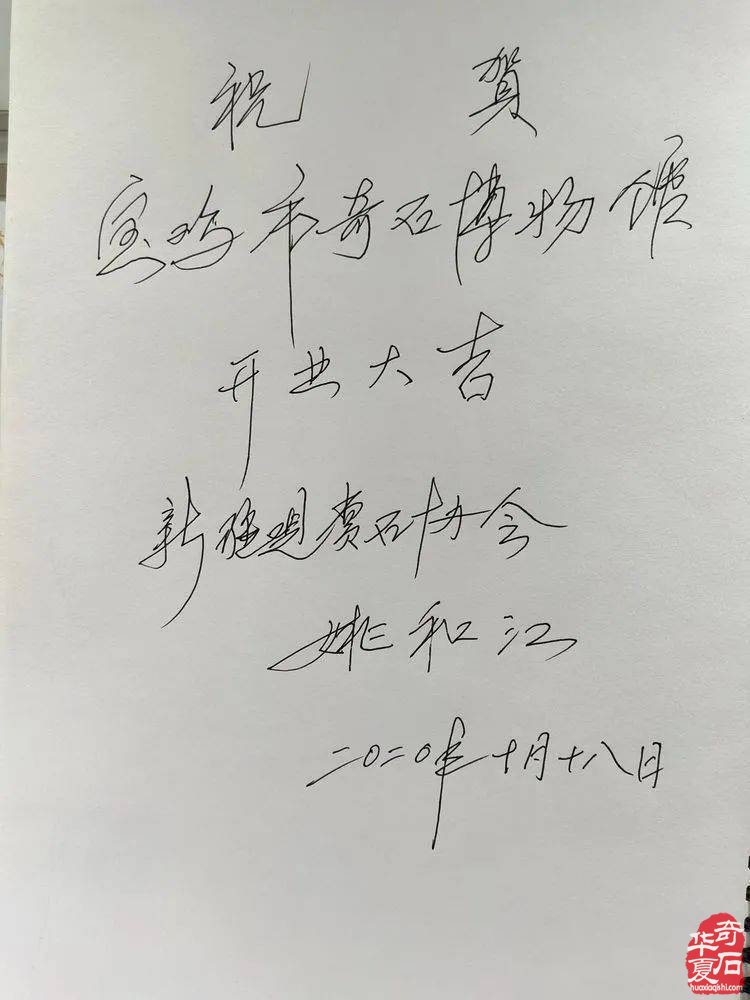 祝 賀
宝鸡市奇石博物馆
开业大吉
新疆观赏石协会
姚和江
二〇二〇年十月十八日
华夏奇石
huaxiaqishi.com